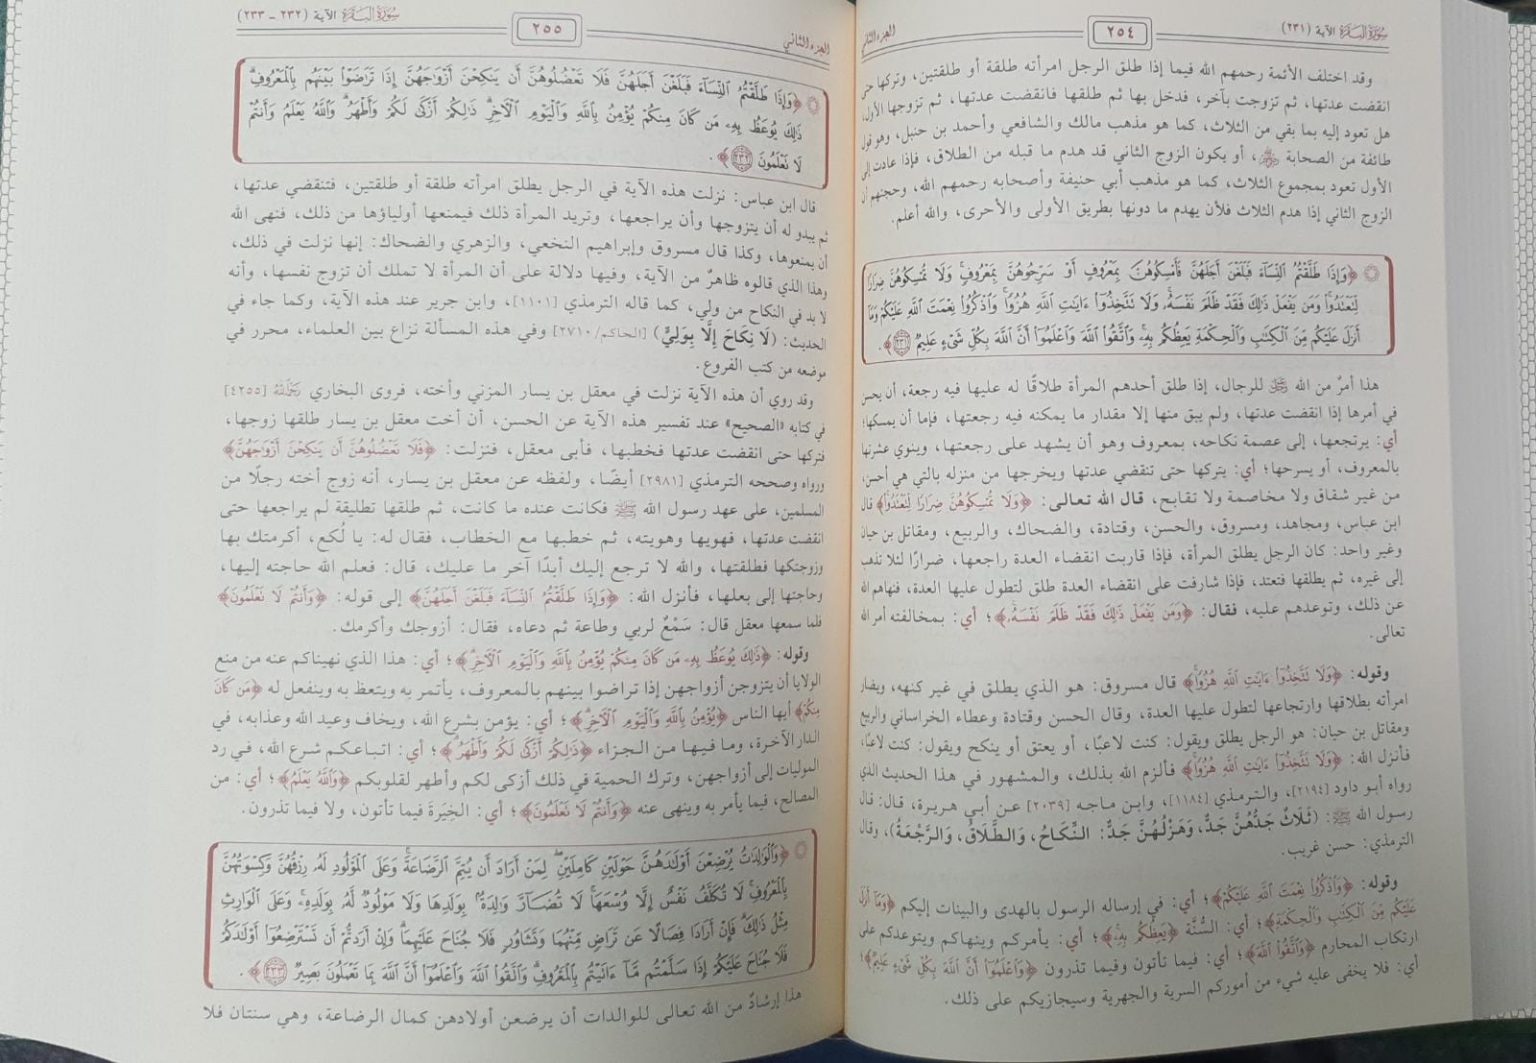 سُورَةُ البَقَرَةِ الآية (٢٣١)
٢٥٤
الجزء الثاني
وقد اختلف الأئمة رحمهم الله فيما إذا طلق الرجل امرأته طلقة أو طلقتين، وتركها حتى
انقضت عدتها، ثم تزوجت بآخر، فدخل بها ثم طلقها فانقضت عدتها، ثم تزوجها الأول،
هل تعود إليه بما بقي من الثلاث، كما هو مذهب مالك والشافعي وأحمد بن حنبل، وهو قول
طائفة من الصحابة ﵃، أو يكون الزوج الثاني قد هدم ما قبله من الطلاق، فإذا عادت إلى
الأول تعود بمجموع الثلاث، كما هو مذهب أبي حنيفة وأصحابه رحمهم الله، وحجتهم أن
الزوج الثاني إذا هدم الثلاث فلأن يهدم ما دونها بطريق الأولى والأحرى، والله أعلم.
﴿وَإِذَا طَلَّقْتُمُ ٱلنِّسَآءَ فَبَلَغْنَ أَجَلَهُنَّ فَأَمْسِكُوهُنَّ بِمَعْرُوفٍ أَوْ سَرِّحُوهُنَّ بِمَعْرُوفٍ ۚ وَلَا تُمْسِكُوهُنَّ ضِرَارًا
لِّتَعْتَدُوا۟ ۚ وَمَن يَفْعَلْ ذَٰلِكَ فَقَدْ ظَلَمَ نَفْسَهُۥ ۚ وَلَا تَتَّخِذُوٓا۟ ءَايَٰتِ ٱللَّهِ هُزُوًا ۚ وَٱذْكُرُوا۟ نِعْمَتَ ٱللَّهِ عَلَيْكُمْ وَمَآ
أَنزَلَ عَلَيْكُم مِّنَ ٱلْكِتَٰبِ وَٱلْحِكْمَةِ يَعِظُكُم بِهِۦ ۚ وَٱتَّقُوا۟ ٱللَّهَ وَٱعْلَمُوٓا۟ أَنَّ ٱللَّهَ بِكُلِّ شَىْءٍ عَلِيمٌ ٢٣١﴾.
هذا أمرٌ من الله ﷿ للرجال، إذا طلق أحدهم المرأة طلاقًا له عليها فيه رجعة، أن يحسن
في أمرها إذا انقضت عدتها، ولم يبق منها إلا مقدار ما يمكنه فيه رجعتها، فإما أن يمسكها؛
أي: يرتجعها، إلى عصمة نكاحه، بمعروف وهو أن يشهد على رجعتها، وينوي عشرتها
بالمعروف، أو يسرحها؛ أي: يتركها حتى تنقضي عدتها ويخرجها من منزله بالتي هي أحسن،
من غير شقاق ولا مخاصمة ولا تقابح، قال الله تعالى: ﴿وَلَا تُمْسِكُوهُنَّ ضِرَارًا لِّتَعْتَدُوا۟﴾ قال
ابن عباس، ومجاهد، ومسروق، والحسن، وقتادة، والضحاك، والربيع، ومقاتل بن حيان
وغير واحد: كان الرجل يطلق المرأة، فإذا قاربت انقضاء العدة راجعها، ضرارًا لئلا تذهب
إلى غيره، ثم يطلقها فتعتد، فإذا شارفت على انقضاء العدة طلق لتطول عليها العدة، فنهاهم الله
عن ذلك، وتوعدهم عليه، فقال: ﴿وَمَن يَفْعَلْ ذَٰلِكَ فَقَدْ ظَلَمَ نَفْسَهُۥ﴾؛ أي: بمخالفته أمر الله
تعالى.
وقوله: ﴿وَلَا تَتَّخِذُوٓا۟ ءَايَٰتِ ٱللَّهِ هُزُوًا﴾ قال مسروق: هو الذي يطلق في غير كنهه، ويضار
امرأته بطلاقها وارتجاعها لتطول عليها العدة، وقال الحسن وقتادة وعطاء الخراساني والربيع
ومقاتل بن حيان: هو الرجل يطلق ويقول: كنت لاعبًا، أو يعتق أو ينكح ويقول: كنت لاعبًا،
فأنزل الله: ﴿وَلَا تَتَّخِذُوٓا۟ ءَايَٰتِ ٱللَّهِ هُزُوًا﴾ فألزم الله بذلك، والمشهور في هذا الحديث الذي
رواه أبو داود [٢١٩٤]، والترمذي [١١٨٤]، وابن ماجه [٢٠٣٩] عن أبي هريرة، قال: قال
رسول الله ﷺ: (ثَلَاثٌ جَدُّهُنَّ جَدٌّ، وَهَزْلُهُنَّ جَدٌّ: النِّكَاحُ، وَالطَّلَاقُ، وَالرَّجْعَةُ)، وقال
الترمذي: حسن غريب.
وقوله: ﴿وَٱذْكُرُوا۟ نِعْمَتَ ٱللَّهِ عَلَيْكُمْ﴾؛ أي: في إرساله الرسول بالهدى والبينات إليكم ﴿وَمَآ أَنزَلَ
عَلَيْكُم مِّنَ ٱلْكِتَٰبِ وَٱلْحِكْمَةِ﴾؛ أي: السُّنَّة ﴿يَعِظُكُم بِهِۦ﴾؛ أي: يأمركم وينهاكم ويتوعدكم على
ارتكاب المحارم ﴿وَٱتَّقُوا۟ ٱللَّهَ﴾؛ أي: فيما تأتون وفيما تذرون ﴿وَٱعْلَمُوٓا۟ أَنَّ ٱللَّهَ بِكُلِّ شَىْءٍ عَلِيمٌ﴾؛
أي: فلا يخفى عليه شيء من أموركم السرية والجهرية وسيجازيكم على ذلك.
الجزء الثاني
٢٥٥
سُورَةُ البَقَرَةِ الآية (٢٣٢ - ٢٣٣)
﴿وَإِذَا طَلَّقْتُمُ ٱلنِّسَآءَ فَبَلَغْنَ أَجَلَهُنَّ فَلَا تَعْضُلُوهُنَّ أَن يَنكِحْنَ أَزْوَٰجَهُنَّ إِذَا تَرَٰضَوْا۟ بَيْنَهُم بِٱلْمَعْرُوفِ ۗ
ذَٰلِكَ يُوعَظُ بِهِۦ مَن كَانَ مِنكُمْ يُؤْمِنُ بِٱللَّهِ وَٱلْيَوْمِ ٱلْءَاخِرِ ۗ ذَٰلِكُمْ أَزْكَىٰ لَكُمْ وَأَطْهَرُ ۗ وَٱللَّهُ يَعْلَمُ وَأَنتُمْ
لَا تَعْلَمُونَ ٢٣٢﴾.
قال ابن عباس: نزلت هذه الآية في الرجل يطلق امرأته طلقة أو طلقتين، فتنقضي عدتها،
ثم يبدو له أن يتزوجها وأن يراجعها، وتريد المرأة ذلك فيمنعها أولياؤها من ذلك، فنهى الله
أن يمنعوها، وكذا قال مسروق وإبراهيم النخعي، والزهري والضحاك: إنها نزلت في ذلك،
وهذا الذي قالوه ظاهرٌ من الآية، وفيها دلالة على أن المرأة لا تملك أن تزوج نفسها، وأنه
لا بد في النكاح من ولي، كما قاله الترمذي [١١٠١]، وابن جرير عند هذه الآية، وكما جاء في
الحديث: (لَا نِكَاحَ إِلَّا بِوَلِيٍّ) [الحاكم/٢٧١٠] وفي هذه المسألة نزاع بين العلماء، محرر في
موضعه من كتب الفروع.
وقد روي أن هذه الآية نزلت في معقل بن يسار المزني وأخته، فروى البخاري ﵀ [٤٢٥٥]
في كتابه «الصحيح» عند تفسير هذه الآية عن الحسن، أن أخت معقل بن يسار طلقها زوجها،
فتركها حتى انقضت عدتها فخطبها، فأبى معقل، فنزلت: ﴿فَلَا تَعْضُلُوهُنَّ أَن يَنكِحْنَ أَزْوَٰجَهُنَّ﴾
ورواه وصححه الترمذي [٢٩٨١] أيضًا، ولفظه عن معقل بن يسار، أنه زوج أخته رجلًا من
المسلمين، على عهد رسول الله ﷺ فكانت عنده ما كانت، ثم طلقها تطليقة لم يراجعها حتى
انقضت عدتها، فهويها وهويته، ثم خطبها مع الخطاب، فقال له: يا لُكع، أكرمتك بها
وزوجتكها فطلقتها، والله لا ترجع إليك أبدًا آخر ما عليك، قال: فعلم الله حاجته إليها،
وحاجتها إلى بعلها، فأنزل الله: ﴿وَإِذَا طَلَّقْتُمُ ٱلنِّسَآءَ فَبَلَغْنَ أَجَلَهُنَّ﴾ إلى قوله: ﴿وَأَنتُمْ لَا تَعْلَمُونَ﴾
فلما سمعها معقل قال: سَمْعٌ لربي وطاعة ثم دعاه، فقال: أزوجك وأكرمك.
وقوله: ﴿ذَٰلِكَ يُوعَظُ بِهِۦ مَن كَانَ مِنكُمْ يُؤْمِنُ بِٱللَّهِ وَٱلْيَوْمِ ٱلْءَاخِرِ﴾؛ أي: هذا الذي نهيناكم عنه من منع
الولايا أن يتزوجن أزواجهن إذا تراضوا بينهم بالمعروف، يأتمر به ويتعظ به وينفعل له ﴿مَن كَانَ
مِنكُمْ﴾ أيها الناس ﴿يُؤْمِنُ بِٱللَّهِ وَٱلْيَوْمِ ٱلْءَاخِرِ﴾؛ أي: يؤمن بشرع الله، ويخاف وعيد الله وعذابه، في
الدار الآخرة، وما فيها من الجزاء ﴿ذَٰلِكُمْ أَزْكَىٰ لَكُمْ وَأَطْهَرُ﴾؛ أي: اتباعكم شرع الله، في رد
الموليات إلى أزواجهن، وترك الحمية في ذلك أزكى لكم وأطهر لقلوبكم ﴿وَٱللَّهُ يَعْلَمُ﴾؛ أي: من
المصالح، فيما يأمر به وينهى عنه ﴿وَأَنتُمْ لَا تَعْلَمُونَ﴾؛ أي: الخِيَرةَ فيما تأتون، ولا فيما تذرون.
﴿وَٱلْوَٰلِدَٰتُ يُرْضِعْنَ أَوْلَٰدَهُنَّ حَوْلَيْنِ كَامِلَيْنِ ۖ لِمَنْ أَرَادَ أَن يُتِمَّ ٱلرَّضَاعَةَ ۚ وَعَلَى ٱلْمَوْلُودِ لَهُۥ رِزْقُهُنَّ وَكِسْوَتُهُنَّ
بِٱلْمَعْرُوفِ ۚ لَا تُكَلَّفُ نَفْسٌ إِلَّا وُسْعَهَا ۚ لَا تُضَآرَّ وَٰلِدَةٌۢ بِوَلَدِهَا وَلَا مَوْلُودٌ لَّهُۥ بِوَلَدِهِۦ ۚ وَعَلَى ٱلْوَارِثِ
مِثْلُ ذَٰلِكَ ۗ فَإِنْ أَرَادَا فِصَالًا عَن تَرَاضٍ مِّنْهُمَا وَتَشَاوُرٍ فَلَا جُنَاحَ عَلَيْهِمَا ۗ وَإِنْ أَرَدتُّمْ أَن تَسْتَرْضِعُوٓا۟ أَوْلَٰدَكُمْ
فَلَا جُنَاحَ عَلَيْكُمْ إِذَا سَلَّمْتُم مَّآ ءَاتَيْتُم بِٱلْمَعْرُوفِ ۗ وَٱتَّقُوا۟ ٱللَّهَ وَٱعْلَمُوٓا۟ أَنَّ ٱللَّهَ بِمَا تَعْمَلُونَ بَصِيرٌ ٢٣٣﴾.
هذا إرشادٌ من الله تعالى للوالدات أن يرضعن أولادهن كمال الرضاعة، وهي سنتان فلا